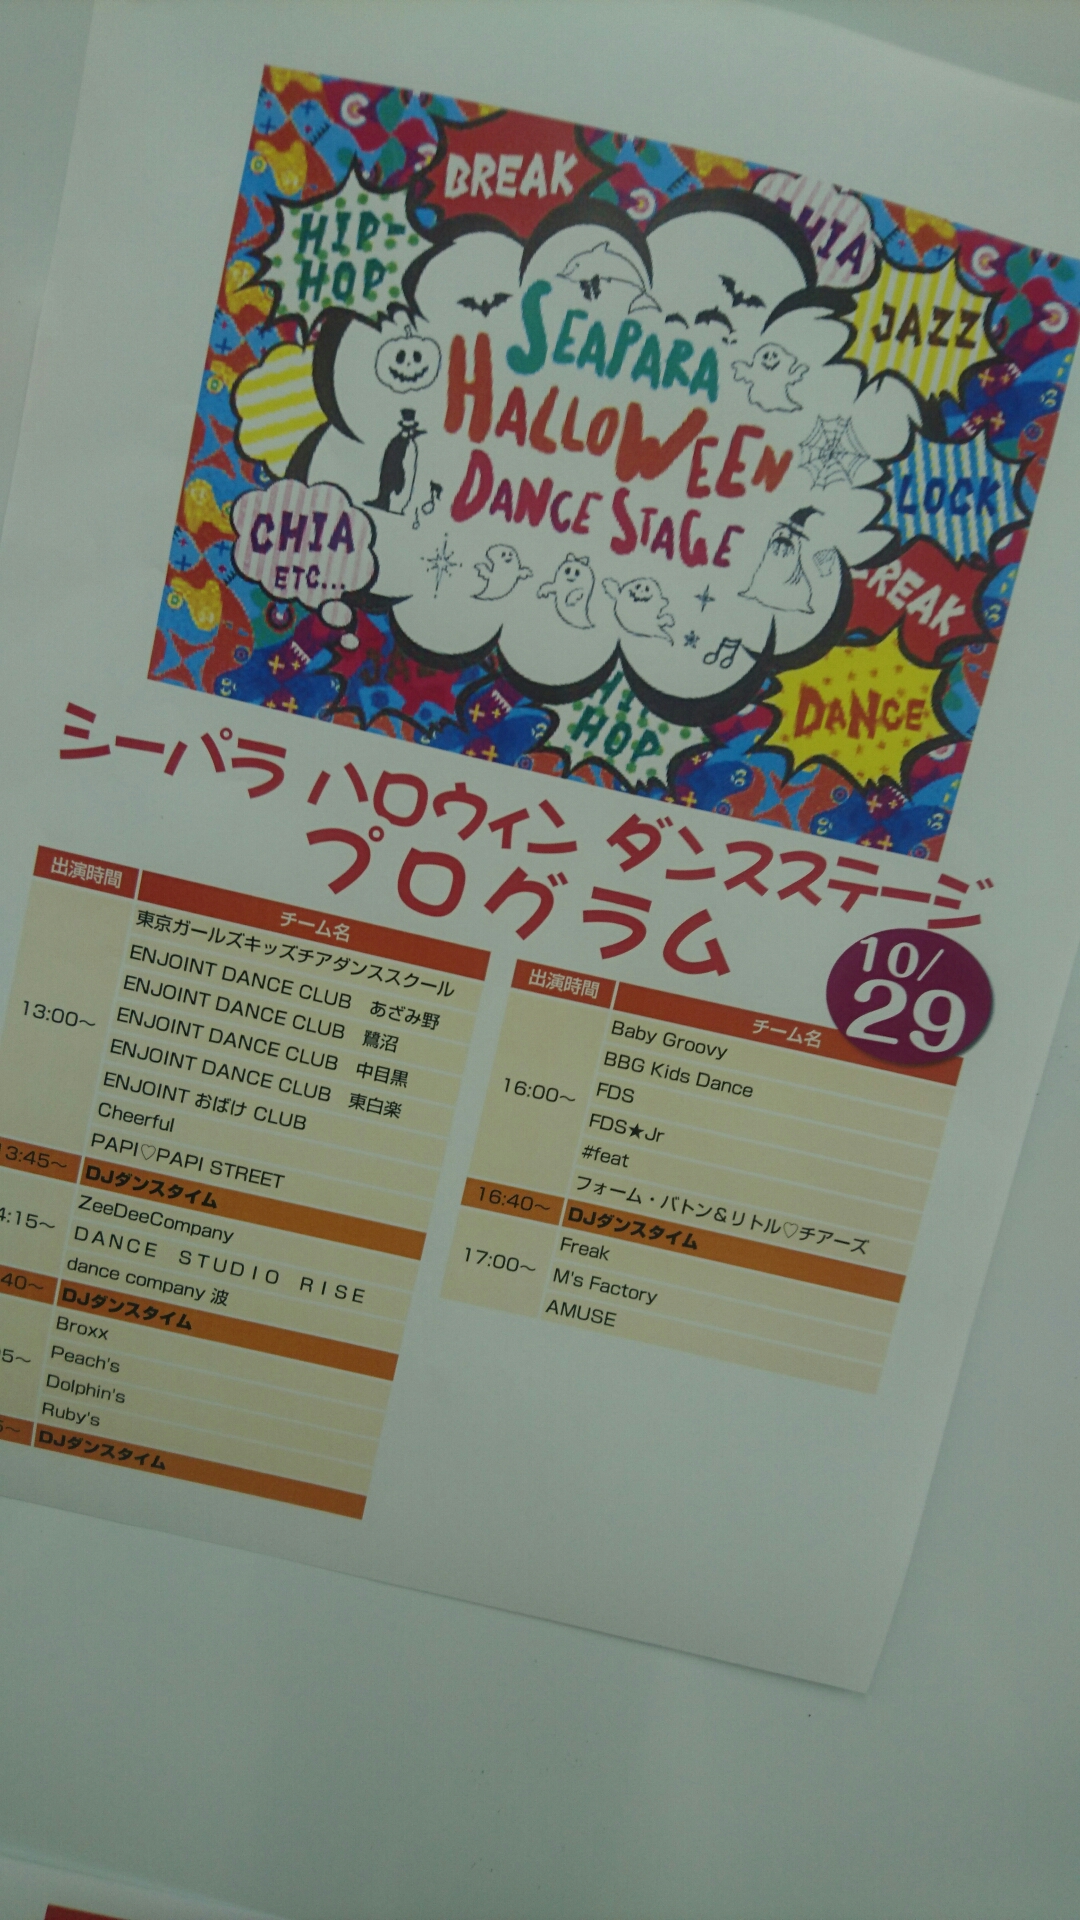 BREAK
CHIA
HIP-
HOP
JAZZ
SEAPARA
HALLOWEEN
DANCE STAGE
LOCK
CHIA
ETC...
BREAK
DANCE
HIP
HOP
シーパラ ハロウィン ダンスステージ
プログラム
10/
29
出演時間 チーム名
13:00～
東京ガールズキッズチアダンススクール
ENJOINT DANCE CLUB あざみ野
ENJOINT DANCE CLUB 鷺沼
ENJOINT DANCE CLUB 中目黒
ENJOINT DANCE CLUB 東白楽
ENJOINT おばけ CLUB
Cheerful
PAPI♡PAPI STREET
3:45～ DJダンスタイム
4:15～
ZeeDeeCompany
DANCE STUDIO RISE
dance company 波
40～ DJダンスタイム
5～
Broxx
Peach's
Dolphin's
Ruby's
5～ DJダンスタイム
出演時間 チーム名
16:00～
Baby Groovy
BBG Kids Dance
FDS
FDS★Jr
#feat
フォーム・バトン＆リトル♡チアーズ
16:40～ DJダンスタイム
17:00～
Freak
M's Factory
AMUSE